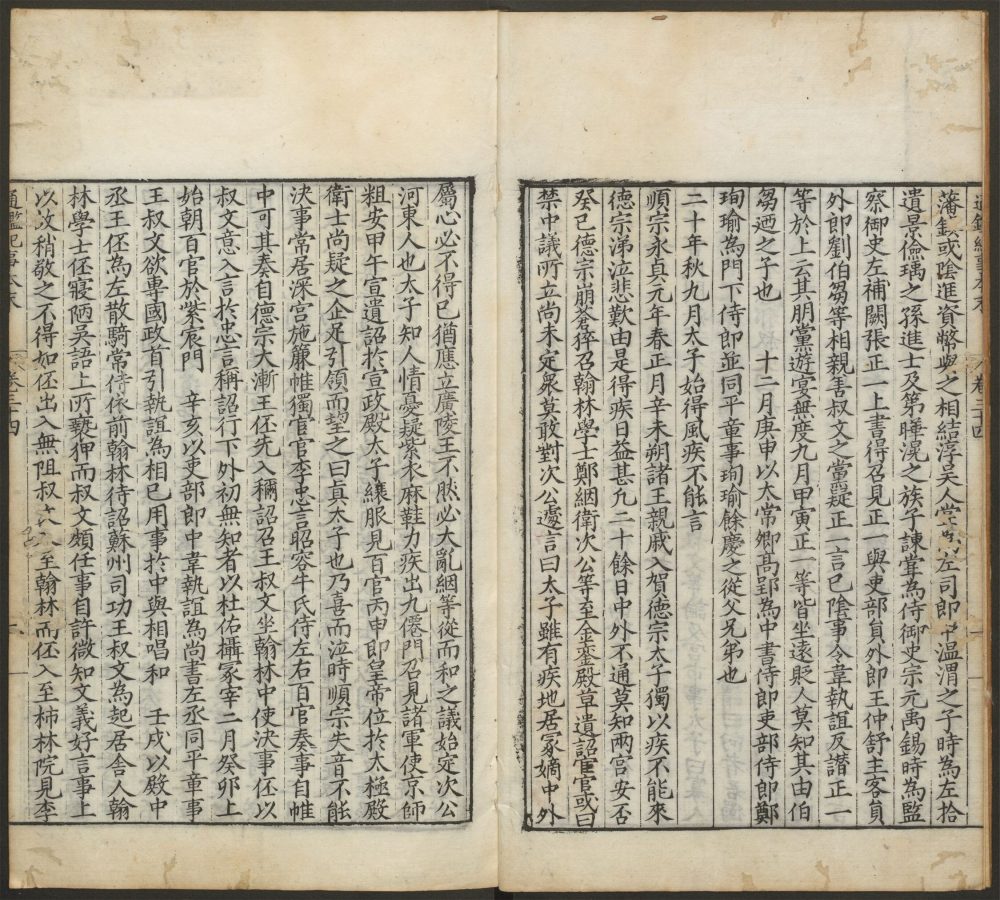 通鑑紀事本末 卷三十四
藩鎮或陰進資幣與之相結淳吳人嘗為左司郎中溫渭之子時為左拾
遺景儉瑀之孫進士及第曄滉之族子諫嘗為侍御史宗元禹錫時為監
察御史左補闕張正一上書得召見正一與吏部員外郎王仲舒主客員
外郎劉伯芻等相親善叔文之黨疑正一言己陰事令韋執誼反譖正一
等於上云其朋黨遊宴無度九月甲寅正一等皆坐遠貶人莫知其由伯
芻迺之子也 十二月庚申以太常卿高郢為中書侍郎吏部侍郎鄭
珣瑜為門下侍郎並同平章事珣瑜餘慶之從父兄弟也
二十年秋九月太子始得風疾不能言
順宗永貞元年春正月辛未朔諸王親戚入賀德宗太子獨以疾不能來
德宗涕泣悲歎由是得疾日益甚凡二十餘日中外不通莫知兩宮安否
癸巳德宗崩蒼猝召翰林學士鄭絪衛次公等至金鑾殿草遺詔宦官或曰
禁中議所立尚未定衆莫敢對次公遽言曰太子雖有疾地居冢嫡中外
屬心必不得已猶應立廣陵王不然必大亂絪等從而和之議始定次公
河東人也太子知人情憂疑紫衣麻鞋力疾出九僊門召見諸軍使京師
粗安甲午宣遺詔於宣政殿太子縗服見百官丙申即皇帝位於太極殿
衛士尚疑之企足引領而望之曰真太子也乃喜而泣時順宗失音不能
決事常居深宮施簾帷獨宦官李忠言昭容牛氏侍左右百官奏事自帷
中可其奏自德宗大漸王伾先入稱詔召王叔文坐翰林中使決事伾以
叔文意入言於忠言稱詔行下外初無知者以杜佑攝冢宰二月癸卯上
始朝百官於紫宸門 辛亥以吏部郎中韋執誼為尚書左丞同平章事
王叔文欲專國政首引執誼為相己用事於中與相唱和 壬戌以殿中
丞王伾為左散騎常侍依前翰林待詔蘇州司功王叔文為起居舍人翰
林學士伾寢陋吳語上所褻狎而叔文頗任事自許微知文義好言事上
以故稍敬之不得如伾出入無阻叔文入至翰林而伾入至柿林院見李
通鑑紀事本末 卷三十四